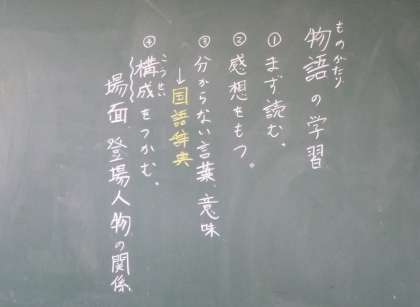 物語の学習
ものがたり
①まず読む。
②感想をもつ。
③分からない言葉、意味
↓国語辞典
④構成をつかむ。
こうせい
場面、登場人物の関係